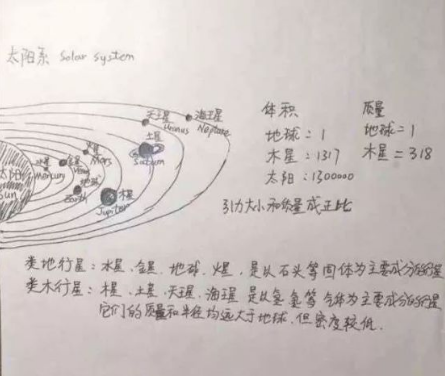 太阳系 Solar system
天王星 Uranus
海王星 Neptune
土星 Saturn
火星 Mars
水星 Mercury
金星
地球 Earth
木星 Jupiter
太阳 Sun
体积
地球：1
木星：1317
太阳：1300000
质量
地球=1
木星=318
引力大小和质量成正比
类地行星：水星、金星、地球、火星，是以石头等固体为主要成分的行星
类木行星：木星、土星、天王星、海王星 是以氢、氦等气体为主要成分的行星
它们的质量和半径均远大于地球，但密度较低.